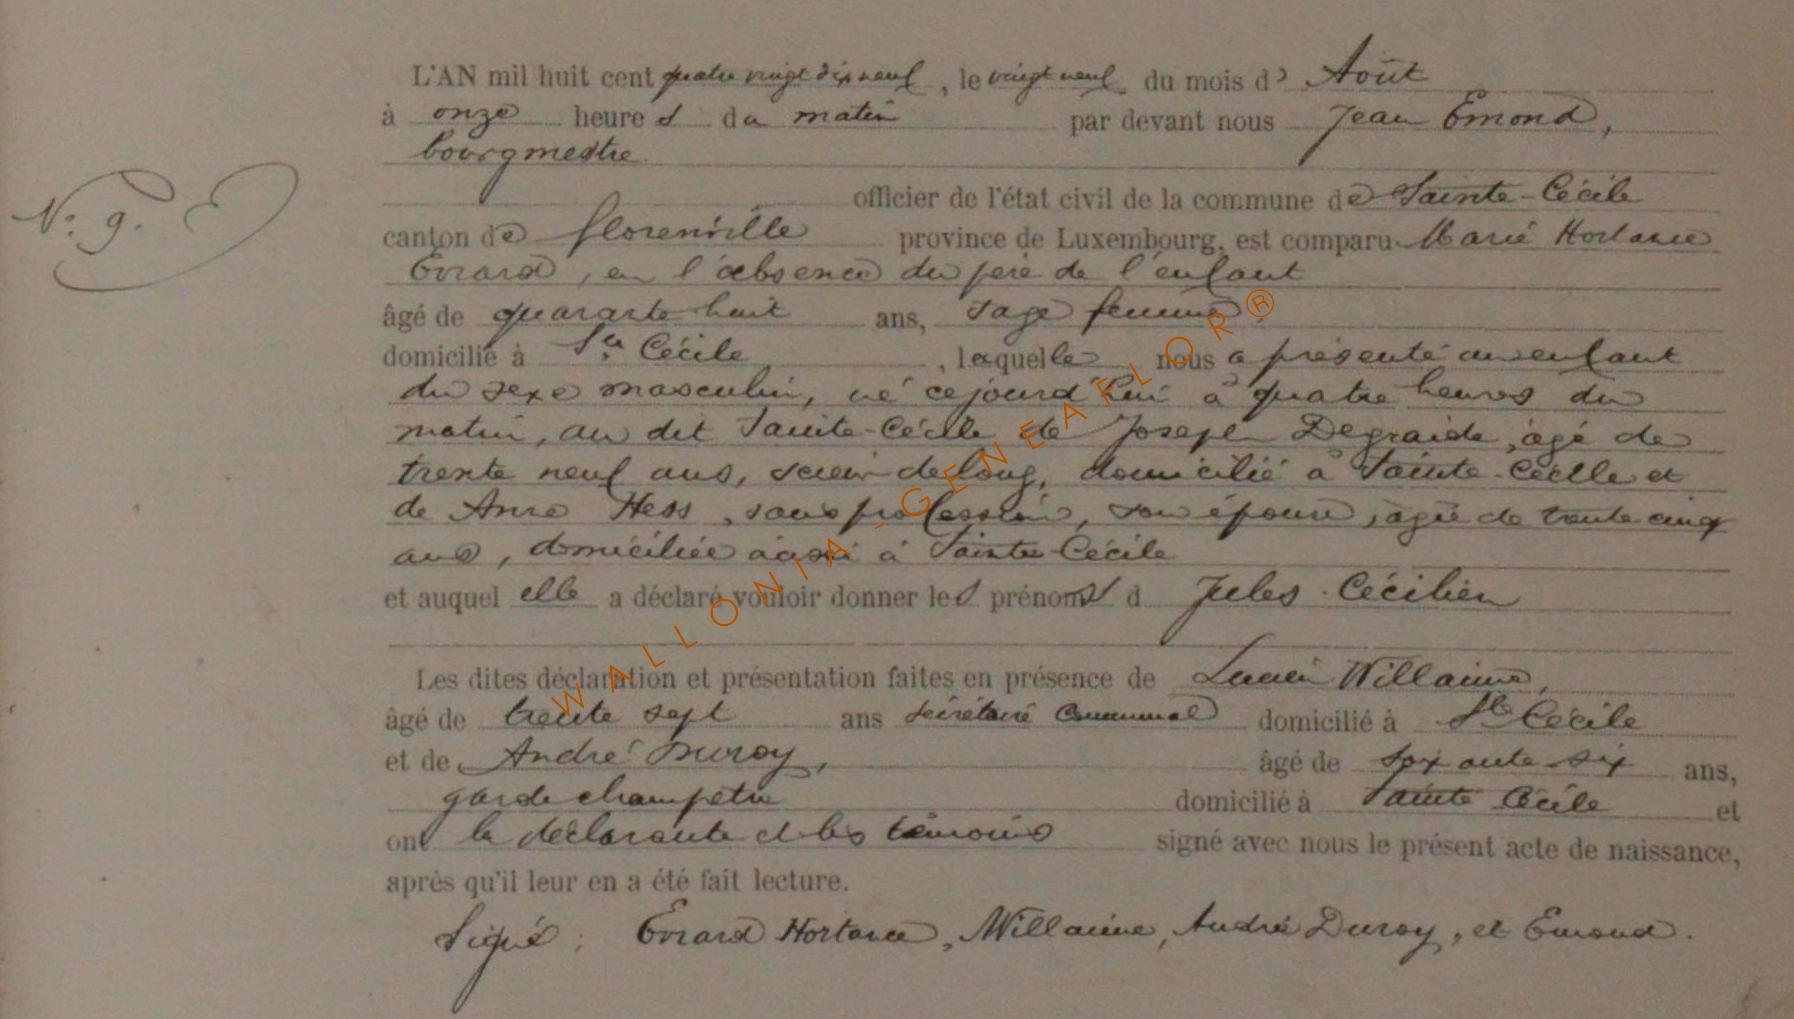 L'AN mil huit cent quatre vingt dix neuf, le vingt neuf du mois d'Août
à onze heures du matin par devant nous Jean Emond,
bourgmestre
N: 9.
officier de l'état civil de la commune de Sainte-Cécile
canton de florenville province de Luxembourg, est comparu Marie Hortance
Evrard, en l'absence du père de l'enfant
âgé de quarante huit ans, sage femme,
domicilié à Ste Cécile, laquelle nous a présenté un enfant
du sexe masculin, né cejourd'hui à quatre heures du
matin, au dit Sainte-Cécile de Joseph Degraide, âgé de
trente neuf ans, scieur de long, domicilié à Sainte-Cécile et
de Anne Hess, sans profession, son épouse, âgée de trente cinq
ans, domiciliée aussi à Sainte-Cécile
et auquel elle a déclaré vouloir donner les prénoms d Jules-Cécilien
Les dites déclaration et présentation faites en présence de Lucien Willaime,
âgé de trente sept ans secrétaire communal domicilié à Ste Cécile
et de André Duroy, âgé de soixante six ans,
garde champêtre domicilié à Sainte Cécile et
ont la déclarante et les témoins signé avec nous le présent acte de naissance,
après qu'il leur en a été fait lecture.
Signé: Evrard Hortance, Willaime, André Duroy, et Emond.
WALLONIA-GENEAFLOR®